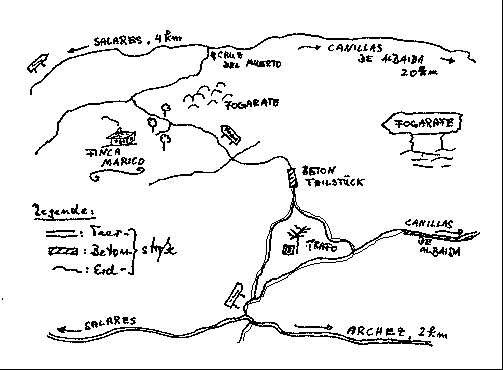 SALARES, 4 km
CRUZ
DEL MUERTO
CANILLAS
DE ALBAIDA
20 km
FOGARATE
FOGARATE
FINCA
MARICO
BETON
TEILSTÜCK
Legende:
: Teer-
: Beton-
: Erd-
CANILLAS
DE
ALBAIDA
SALARES
ARCHEZ, 2 km